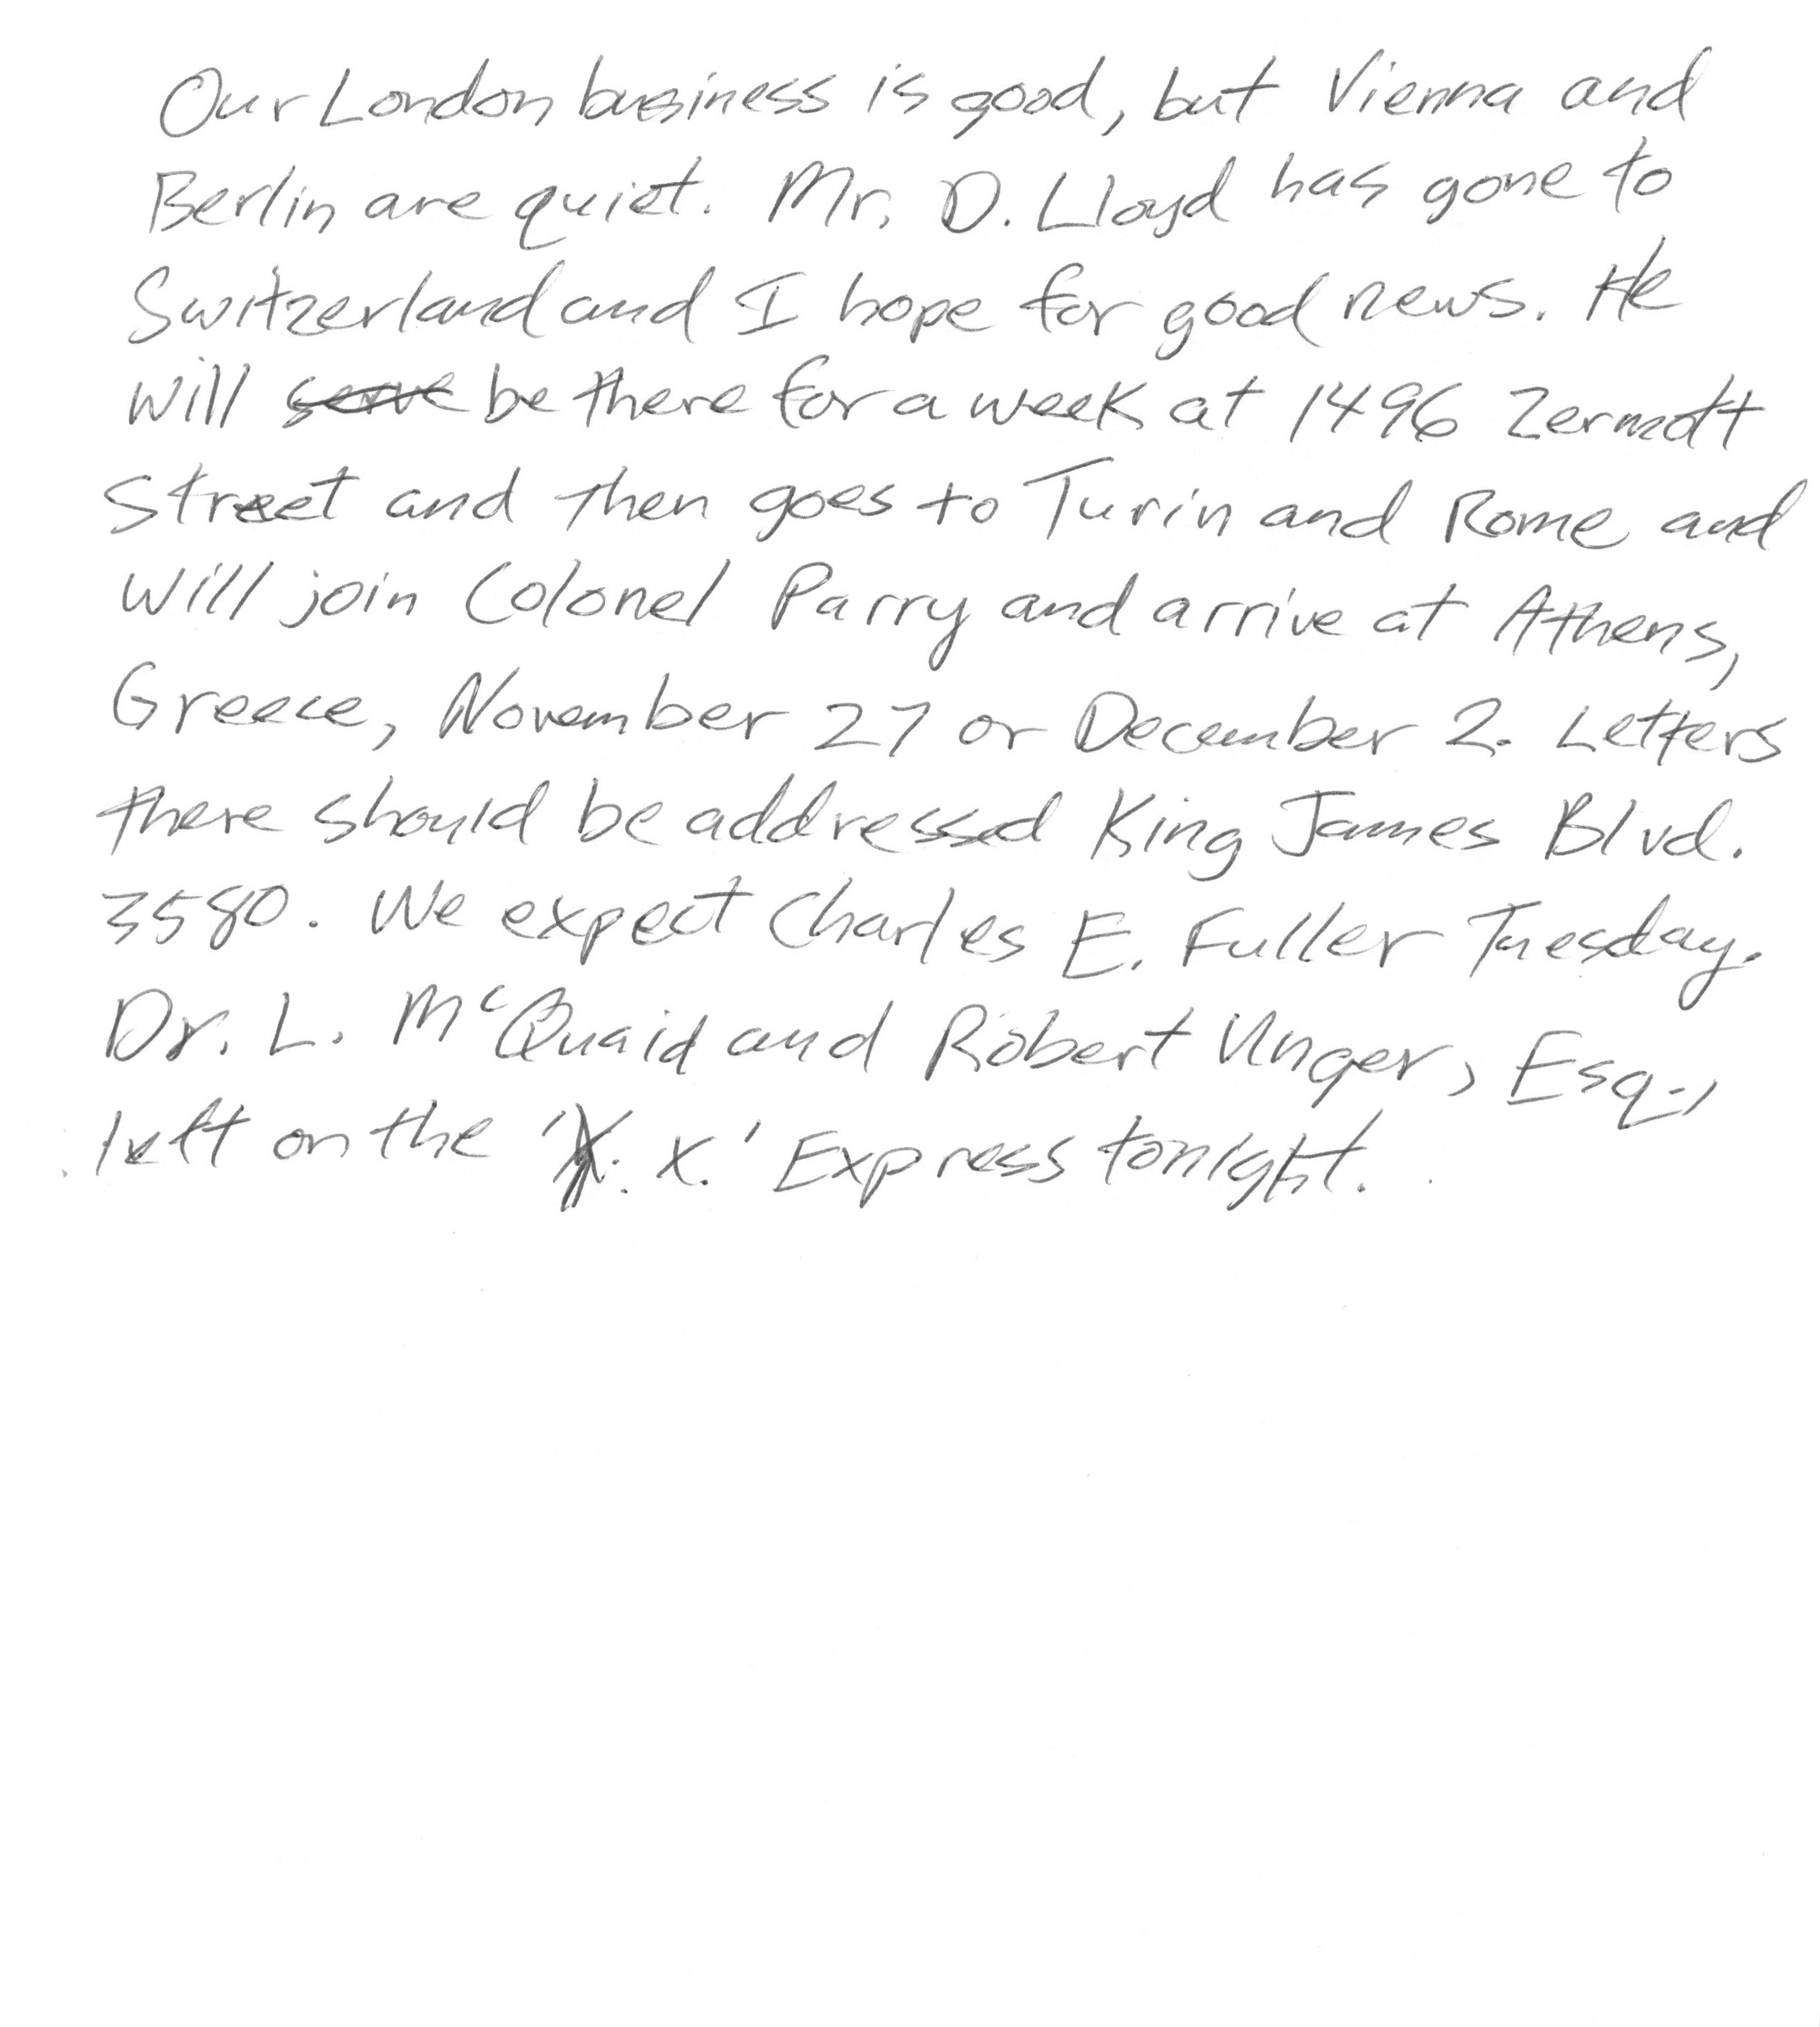 Our London business is good, but Vienna and
Berlin are quiet. Mr. D. Lloyd has gone to
Switzerland and I hope for good news. He
will serve be there for a week at 1496 Zermott
Street and then goes to Turin and Rome and
will join Colonel Parry and arrive at Athens,
Greece, November 27 or December 2. Letters
there should be addressed King James Blvd.
3580. We expect Charles E. Fuller Tuesday.
Dr. L. McQuaid and Robert Unger, Esq.,
left on the 'Y. X.' Express tonight.